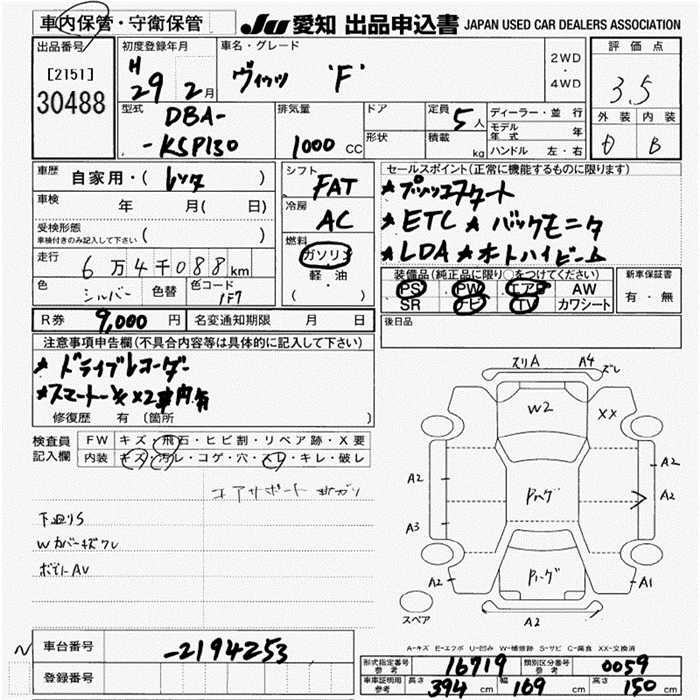 車内保管・守衛保管
JU 愛知 出品申込書 JAPAN USED CAR DEALERS ASSOCIATION
出品番号
[2151]
30488
初度登録年月
H 29 2月
車名・グレード
ヴィッツ 'F'
2WD
・
4WD
評価点
3.5
外装 内装
D B
型式
DBA-
-KSP130
排気量
1000 CC
ドア
形状
定員 5人
積載 kg
ディーラー・並行
モデル年式 年
ハンドル 左・右
車歴
自家用・( レンタ )
車検 年 月( 日)
受検形態
車検付きのみ記入して下さい ( )
走行
6万4千088km
色 シルバー
色替
色コード 1F7
シフト
FAT
冷房
AC
燃料
ガソリン
軽・油
( )
セールスポイント(正常に機能するものに限ります)
★プッシュスタート
★ETC ★バックモニタ
★LDA ★オートハイビーム
装備品(純正品に限り○をつけてください)
PS PW エアB AW
SR ナビ TV カワシート
新車保証書
有・無
R券 9,000円
名変通知期限 月 日
後日品
注意事項申告欄(不具合内容等は具体的に記入して下さい)
★ドライブレコーダー
★スマートキーx2車内有
修復歴 有 〔箇所 〕
検査員
記入欄
FW キズ・飛石・ヒビ割・リペア跡・X要
内装 キズ・汚レ・コゲ・穴・スレ・キレ・破レ
エアサポート
下廻りS
Wカバーキズワレ
ボデーAV
スリA A4 ズレ
W2
XX
A2
A2
A2
A3
A2
A1
A2
スペア
A-キズ E-エクボ U-凹み W-補修跡 S-サビ C-腐食 XX-交換済
車台番号 -2194253
登録番号
形式指定番号 参考 16719
類別区分番号 参考 0059
車庫証明用 参考 長さ 394 cm 幅 169 cm 高さ 150 cm